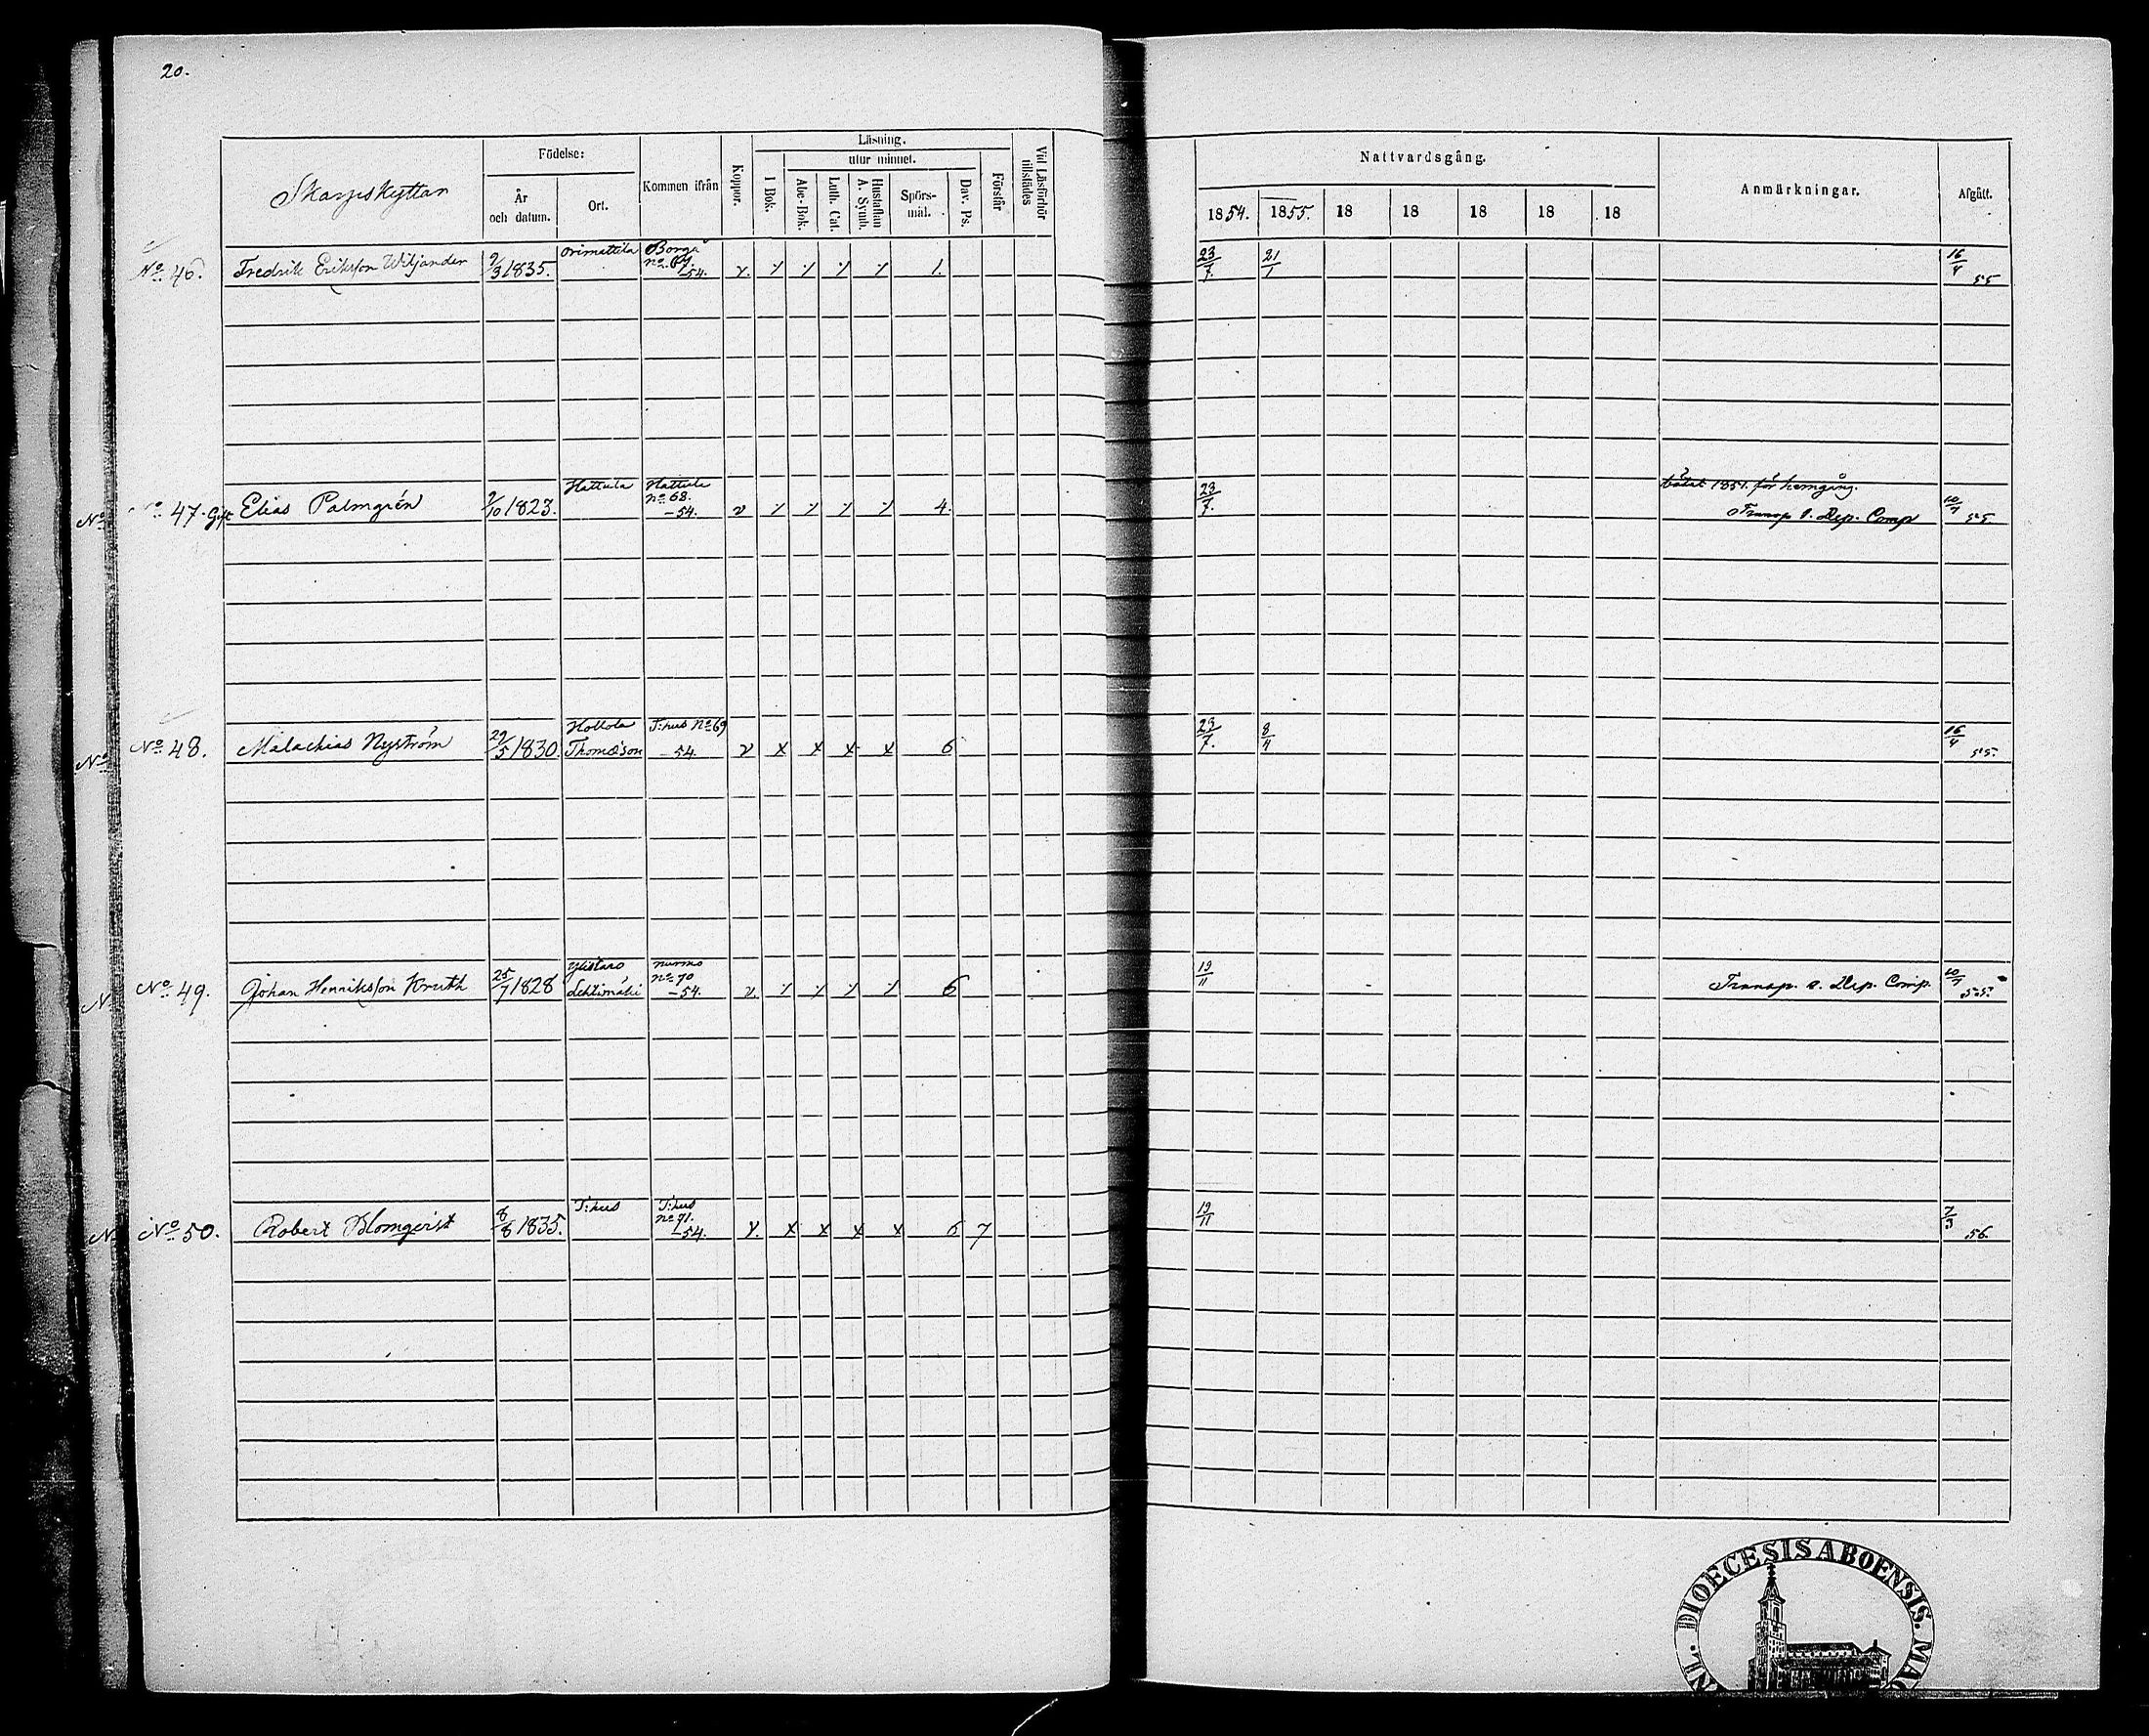 20.
Skarpskyttar
Födelse:
År och datum.
Ort.
Kommen ifrån
Koppor.
Läsning.
I Bok.
utur minnet.
Abc-Bok.
Luth. Cat.
Hustaflan A. Symb.
Spörsmål.
Dav. Ps.
Förstår
Vid Läsförhör tillstädes
Nattvardsgång.
1854. 1855. 18 18 18 18 18
Anmärkningar.
Afgått.
No 46. Fredrik Eriksson Wikjander 9/3 1835. Orimattila Borgå -54. v. 1. 23/7. 21/1 16/4 55
No 47. Gift Elias Palmgrén 9/10 1823. Hattula Hattula No 68. -54. v 4. 23/7. 1854. för hemgång.
Transp. Dep. Comp 10/7 55.
No 48. Malachias Nyström 29/5 1830. Hollola T:hus No 69 -54 v x x x x 6 23/7. 8/4 16/4 55.
No 49. Johan Henriksson Kruth 25/7 1828 Ylistaro Nurmo No 70 -54. v. 6 19/11 Transp. Dep. Comp. 10/7 55.
No 50. Robert Blomqvist 8/8 1835. T:hus T:hus No 71. -54. v. x x x x 6 7 19/11 7/3 56.
DIOECESIS ABOENSIS.